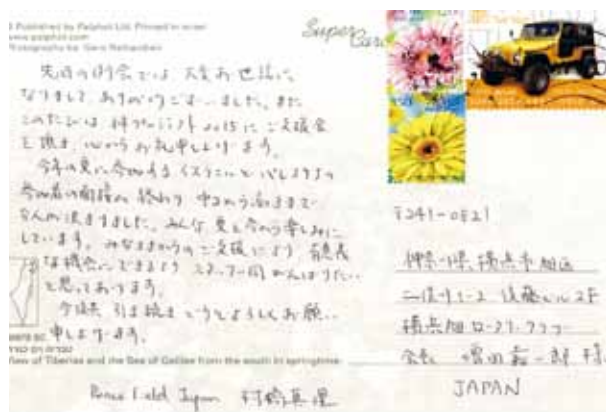 Published by Palphot Ltd. Printed in Israel
www.palphot.com
Photography by: Garo Nalbandian
Super Card
先日の例会では、大変お世話に
なりまして、ありがとうございました。また
このたびは、絆プロジェクト2015にご支援金
を頂き、心からお礼申し上げます。
今年の夏に参加するイスラエルとパレスチナの
参加者の面接が終わり
なんとか決まりました。みんな夏を今から楽しみに
しています。みなさまからのご支援により 有意義
な機会にできるよう スタッフ一同がんばりたい
と思っております。
今後共 引き続きどうぞよろしくお願い
申し上げます。
View of Tiberias and the Sea of Galilee from the south in springtime.
Peace Field Japan 村橋真理
〒241-0821
神奈川県横浜市旭区
二俣川1-2 後藤ビル2F
横浜旭ロータリークラブ
会長 増田嘉一郎 様
JAPAN